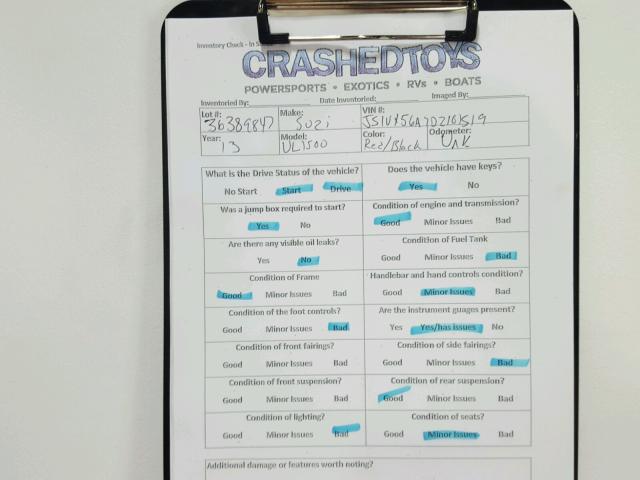 Inventory Check - In S
CRASHEDTOYS
POWERSPORTS • EXOTICS • RVs • BOATS
Inventoried By: Date Inventoried: Imaged By:
Lot #: 36389847 Make: SUZi VIN #:
Year: 13 Model: VL1500 Color: Red/Black Odometer: UNK
What is the Drive Status of the vehicle? Does the vehicle have keys?
No Start Start Drive Yes No
Was a jump box required to start? Condition of engine and transmission?
Yes No Good Minor Issues Bad
Are there any visible oil leaks? Condition of Fuel Tank
Yes No Good Minor Issues Bad
Condition of Frame Handlebar and hand controls condition?
Good Minor Issues Bad Good Minor Issues Bad
Condition of the foot controls? Are the instrument guages present?
Good Minor Issues Bad Yes Yes/has issues No
Condition of front fairings? Condition of side fairings?
Good Minor Issues Bad Good Minor Issues Bad
Condition of front suspension? Condition of rear suspension?
Good Minor Issues Bad Good Minor Issues Bad
Condition of lighting? Condition of seats?
Good Minor Issues Bad Good Minor Issues Bad
Additional damage or features worth noting?